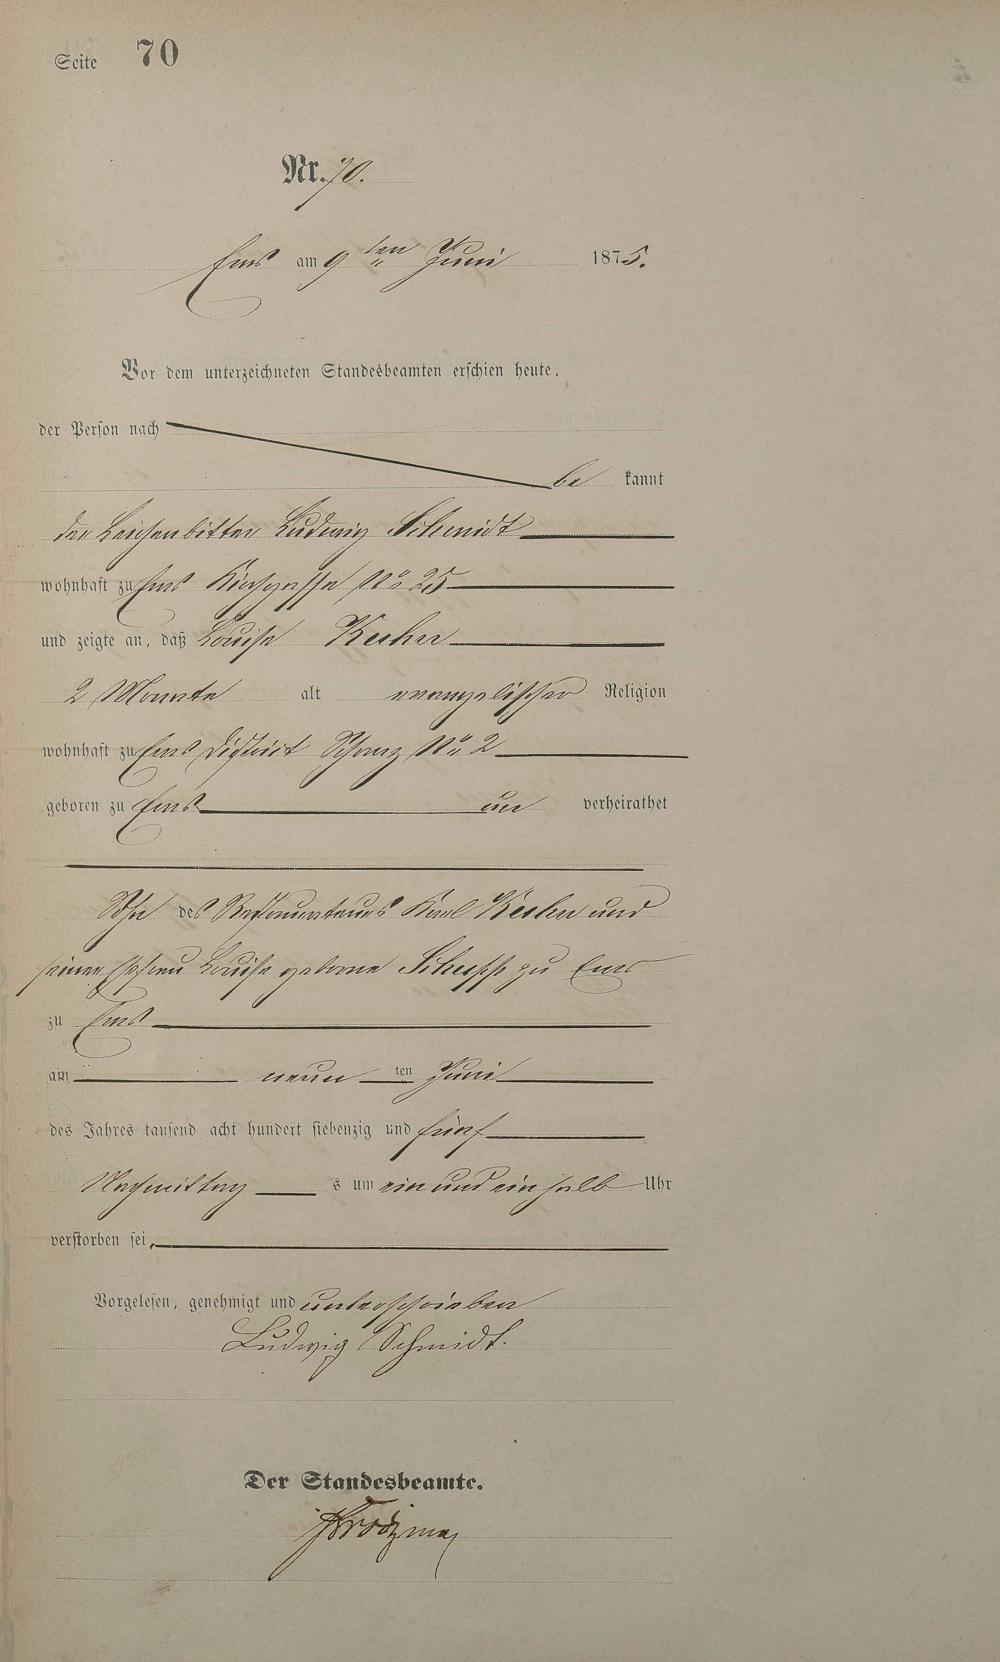 Seite 70
Nr. 70.
Ems am 9 ten Juni 1875.
Vor dem unterzeichneten Standesbeamten erschien heute,
der Person nach
be kannt
der Leichenbitter Ludwig Schmidt
wohnhaft zu Ems Kirchgasse No 25
und zeigte an, daß Louise
2 Monate alt evangelischer Religion
wohnhaft zu Ems District Schanz No 2
geboren zu Ems un verheirathet
des Restaurateurs Karl und
seiner Ehefrau Louise geborne zu Ems
zu Ems
am neun ten Juni
des Jahres tausend acht hundert siebenzig und fünf
Nachmittag s um ein und ein halb Uhr
verstorben sei,
Vorgelesen, genehmigt und unterschrieben
Ludwig Schmidt.
Der Standesbeamte.